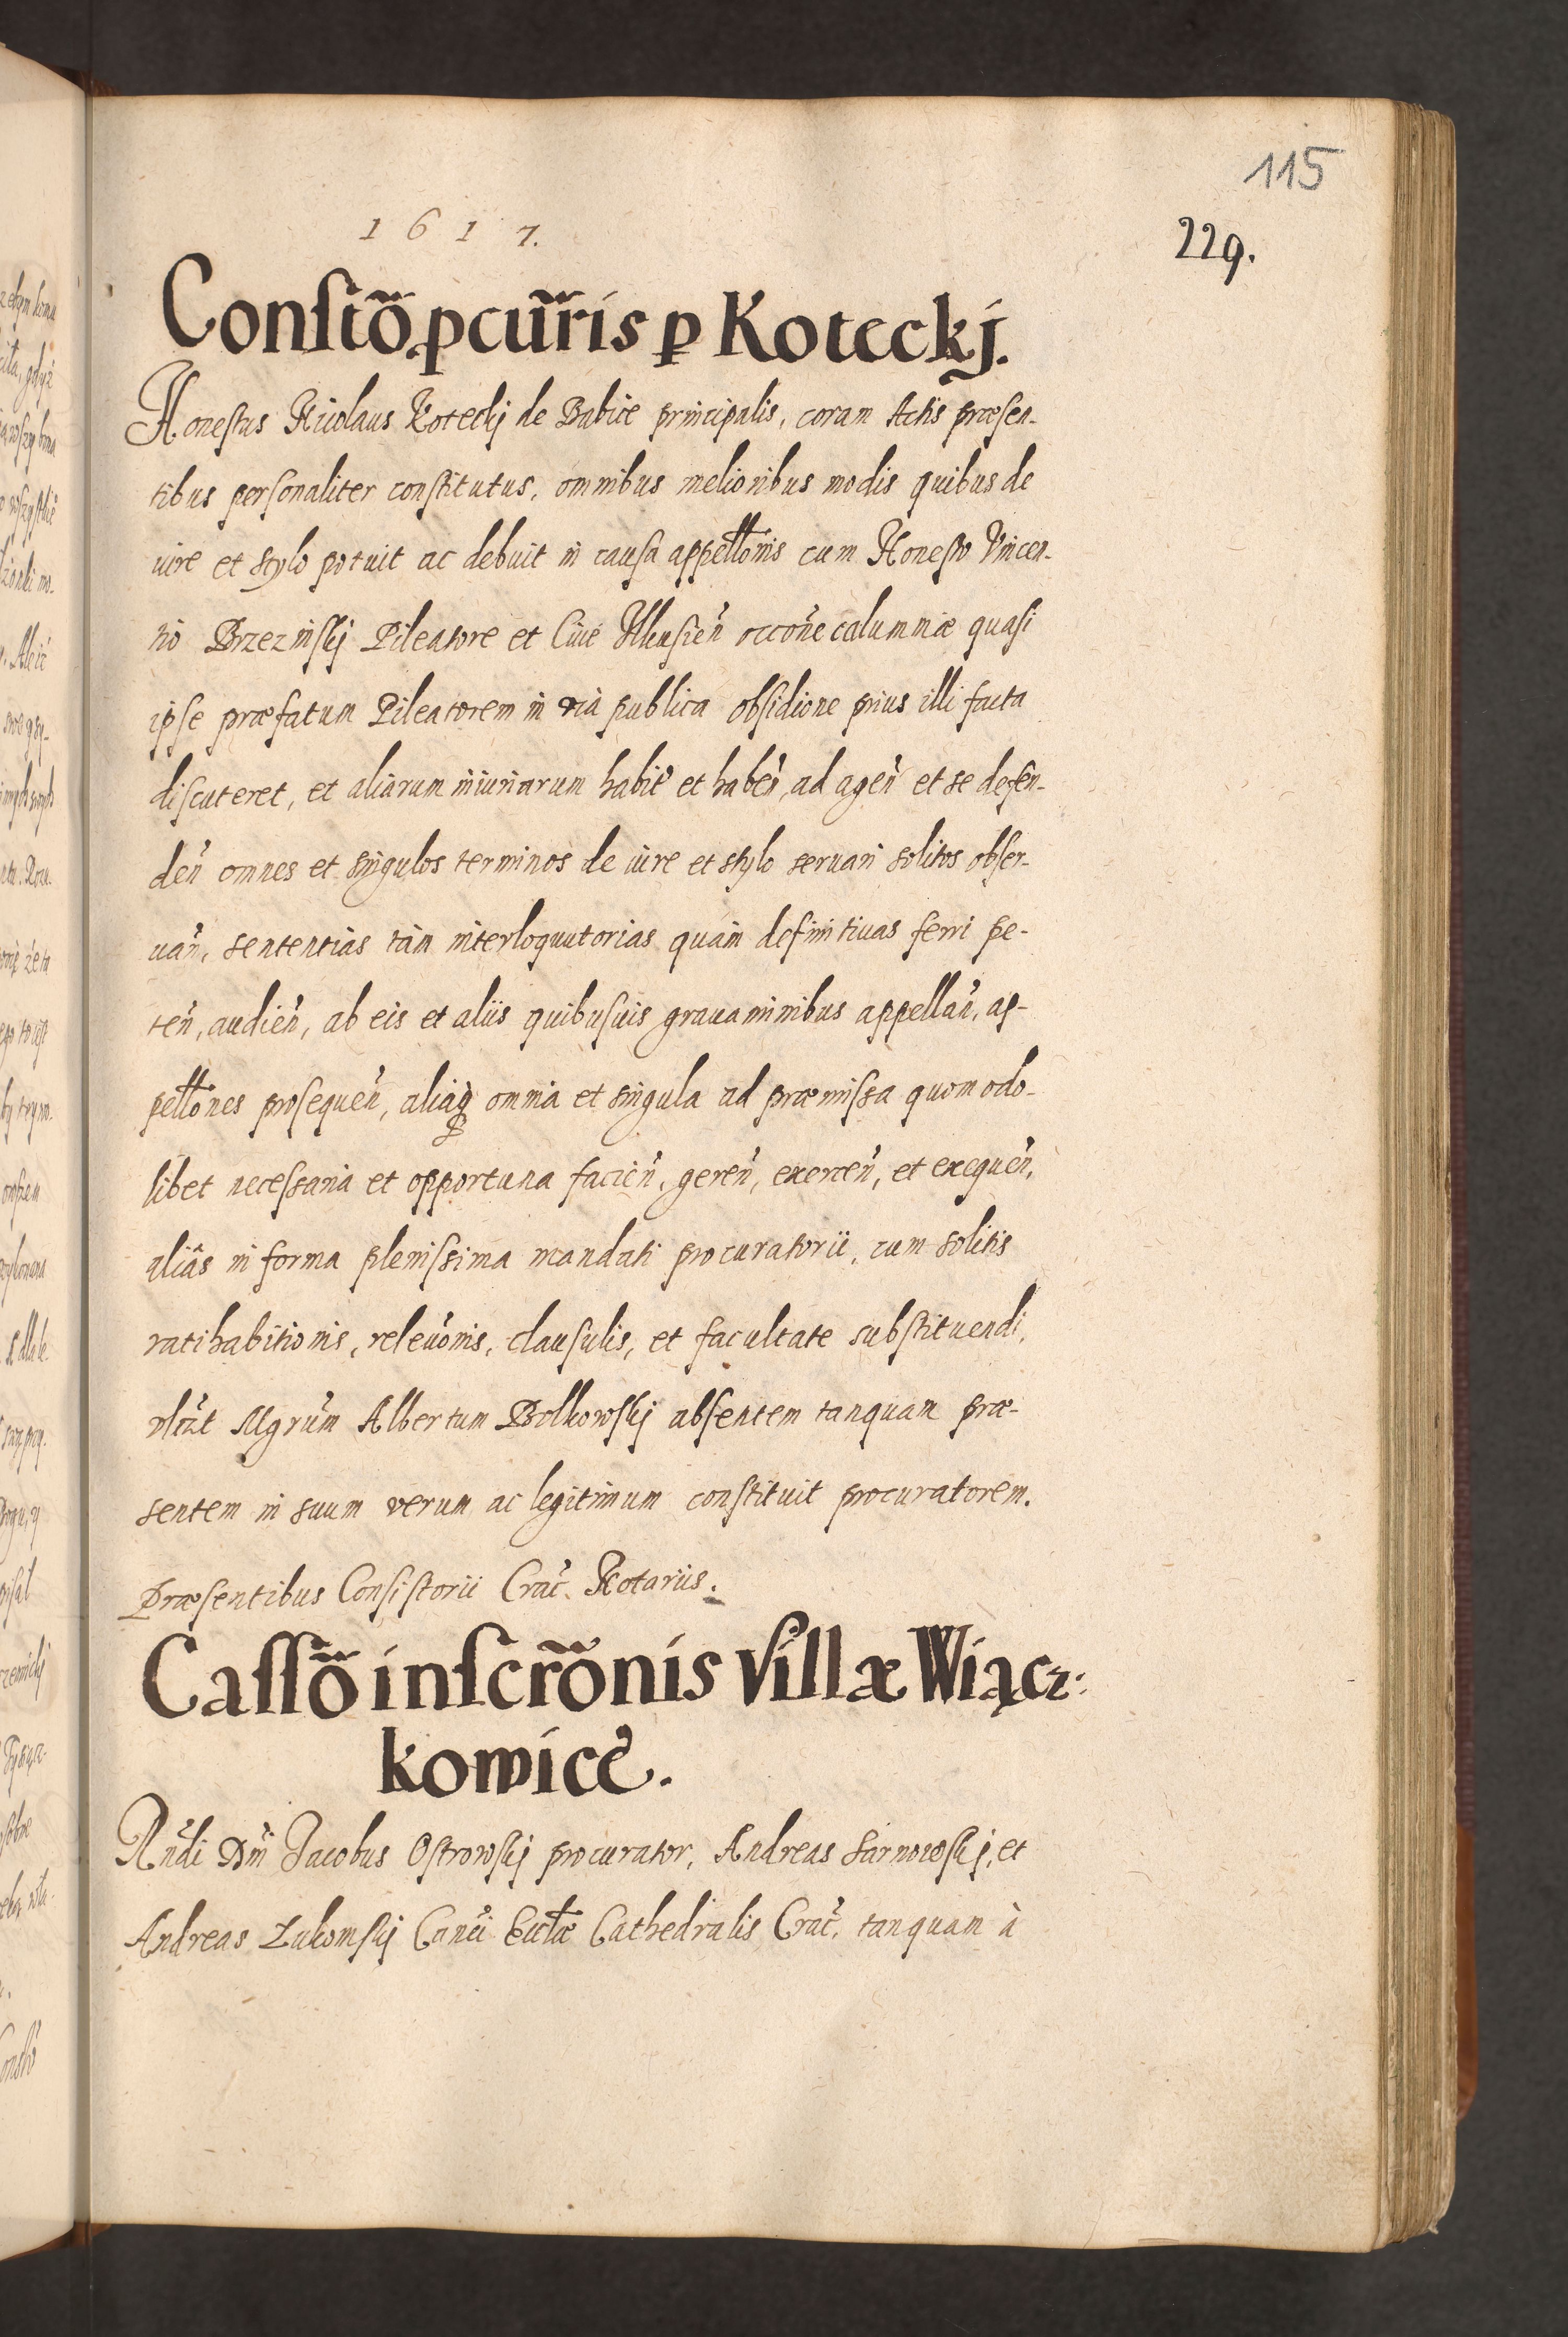 115
1617.
229.
Constiõ pcur̃ris p Koteckj.
Honestus Nicolaus Koteckj de Babice principalis, coram Actis præsen-
tibus personaliter constitutus, omnibus melioribus modis quibus de
iure et stylo potuit ac debuit in causa appellõnis cum Honesto Vincen-
tio Brzezinskj Pileatore et Ciue Ilkusien̄ occõne calumniæ quasi
ipse præfatum Pileatorem in via publica obsidione prius illi facta
discuteret, et aliarum iniuriarum habit̄ et haben̄, ad agen̄ et se defen-
den̄ omnes et singulos terminos de iure et stylo seruari solitos obser-
uan̄, sententias tàm interloquutorias quàm definitiuas ferri pe-
ten̄, audien̄, ab eis et aliis quibusuis grauaminibus appellan̄, ap-
pellõnes prosequen̄, aliaq̨ omnia et singula ad præmissa quomodo-
libet necessaria et opportuna facien̄, geren̄, exercen̄, et exequen̄,
aliâs in forma plenissima mandati procuratorii, cum solitis
ratihabitionis, releuõnis, clausulis, et facultate substituendi,
Mgrum̄ Albertum Bolkowskj absentem tanquam præ-
sentem in suum verum ac legitimum constituit procuratorem.
Præsentibus Consistorii Crac̄. Notariis.
Cassõ inscrõnis Villæ Wiącz-
kowice.
Rn̄di Dn̄i Jacobus Ostrowskj procurator, Andreas Sarnowskj, et
Andreas Łukomskj Canci Eccl̄æ Cathedralis Crac̄. tanquam à